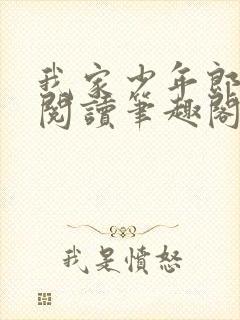 我家少年郎
閱讀筆趣閣
我是憤怒